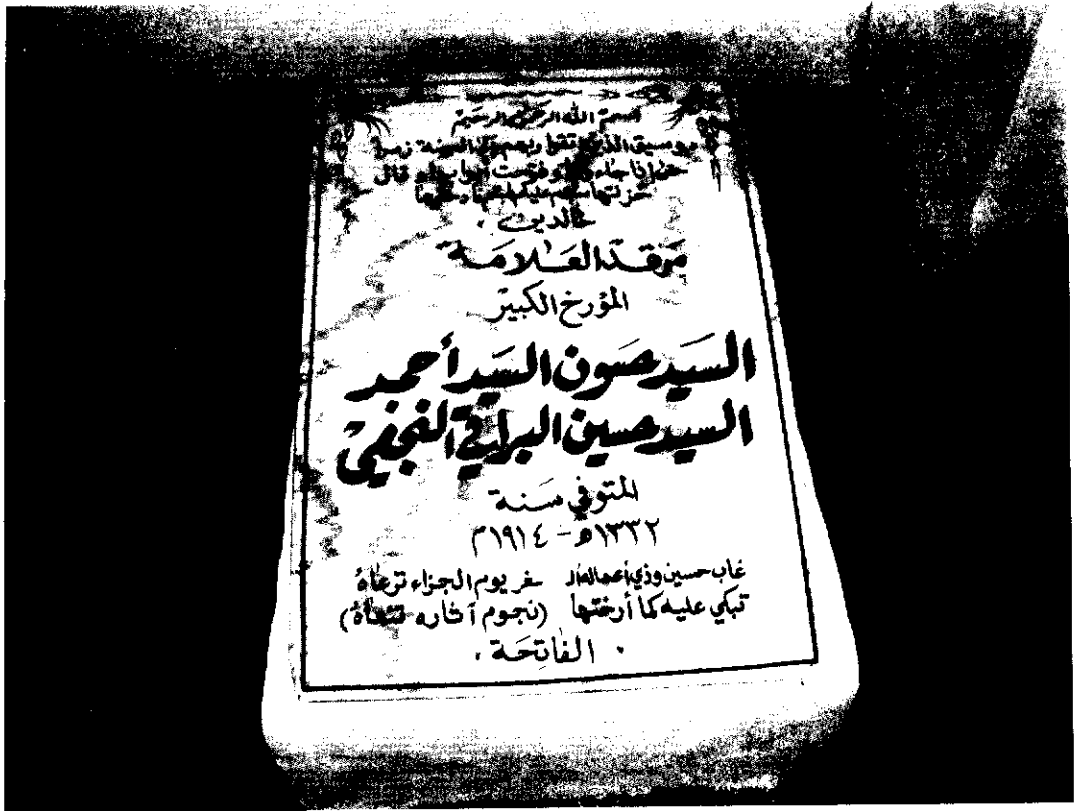 بسم الله الرحمن الرحيم
وسيق الذين اتقوا ربهم إلى الجنة زمرا
حتى إذا جاءوها وفتحت أبوابها وقال
خزنتها سلام عليكم طبتم فادخلوها
خالدين .
مرقد العلامة
المؤرخ الكبير
السيد حسون السيد أحمد
السيد حسين البراقي النجفي
المتوفي سنة
١٣٣٢هـ - ١٩١٤م
غاب حسين وذي أعماله الـ غر يوم الجزاء ترعاهُ
تبكي عليه كما أرختها (نجوم آثاره تنعاهُ)
. الفاتحة .